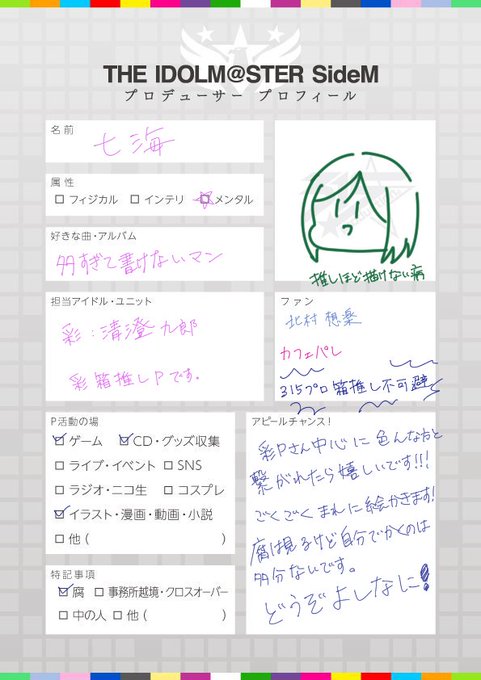 THE IDOLM@STER SideM
プロデューサー プロフィール
名前
七海
属性
フィジカル インテリ メンタル
好きな曲・アルバム
多すぎて書けないマン
推しほど描けない病
担当アイドル・ユニット
彩:清澄九郎
彩箱推しPです。
ファン
北村想楽
カフェパレ
315プロ箱推し不可避
P活動の場
ゲーム CD・グッズ収集
ライブ・イベント SNS
ラジオ・ニコ生 コスプレ
イラスト・漫画・動画・小説
他( )
特記事項
腐 事務所越境・クロスオーバー
中の人 他( )
アピールチャンス!
彩Pさん中心に色んな方と
繋がれたら嬉しいです!!!
ごくごくまれに絵かきます!
腐は見るけど自分でかくのは
多分ないです。
どうぞよしなに!